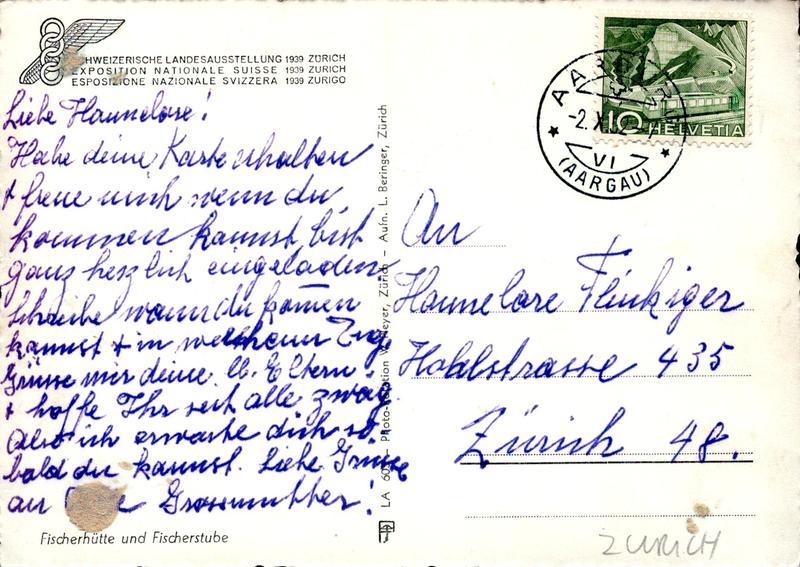 SCHWEIZERISCHE LANDESAUSSTELLUNG 1939 ZÜRICH
EXPOSITION NATIONALE SUISSE 1939 ZURICH
ESPOSIZIONE NAZIONALE SVIZZERA 1939 ZURIGO
Liebe Hannelore!
Habe deine Karte erhalten
+ freue mich wenn du
kommen kannst, bist
ganz herzlich eingeladen
Schreibe wann du komen
kannst + in welchem Zug.
Grüsse mir deine lb. Eltern.
+ hoffe Ihr seit alle zwag.
Also ich erwarte dich so
bald du kannst. Liebe Grüsse
an Grossmutter!
Fischerhütte und Fischerstube
LA Photo-rotation Zürich – Aufn. L. Beringer, Zürich
AARBURG
-2.X.52
VI
(AARGAU)
10 HELVETIA
An
Hannelore Flükiger
Hohlstrasse 435
Zürich 48.
ZURICH